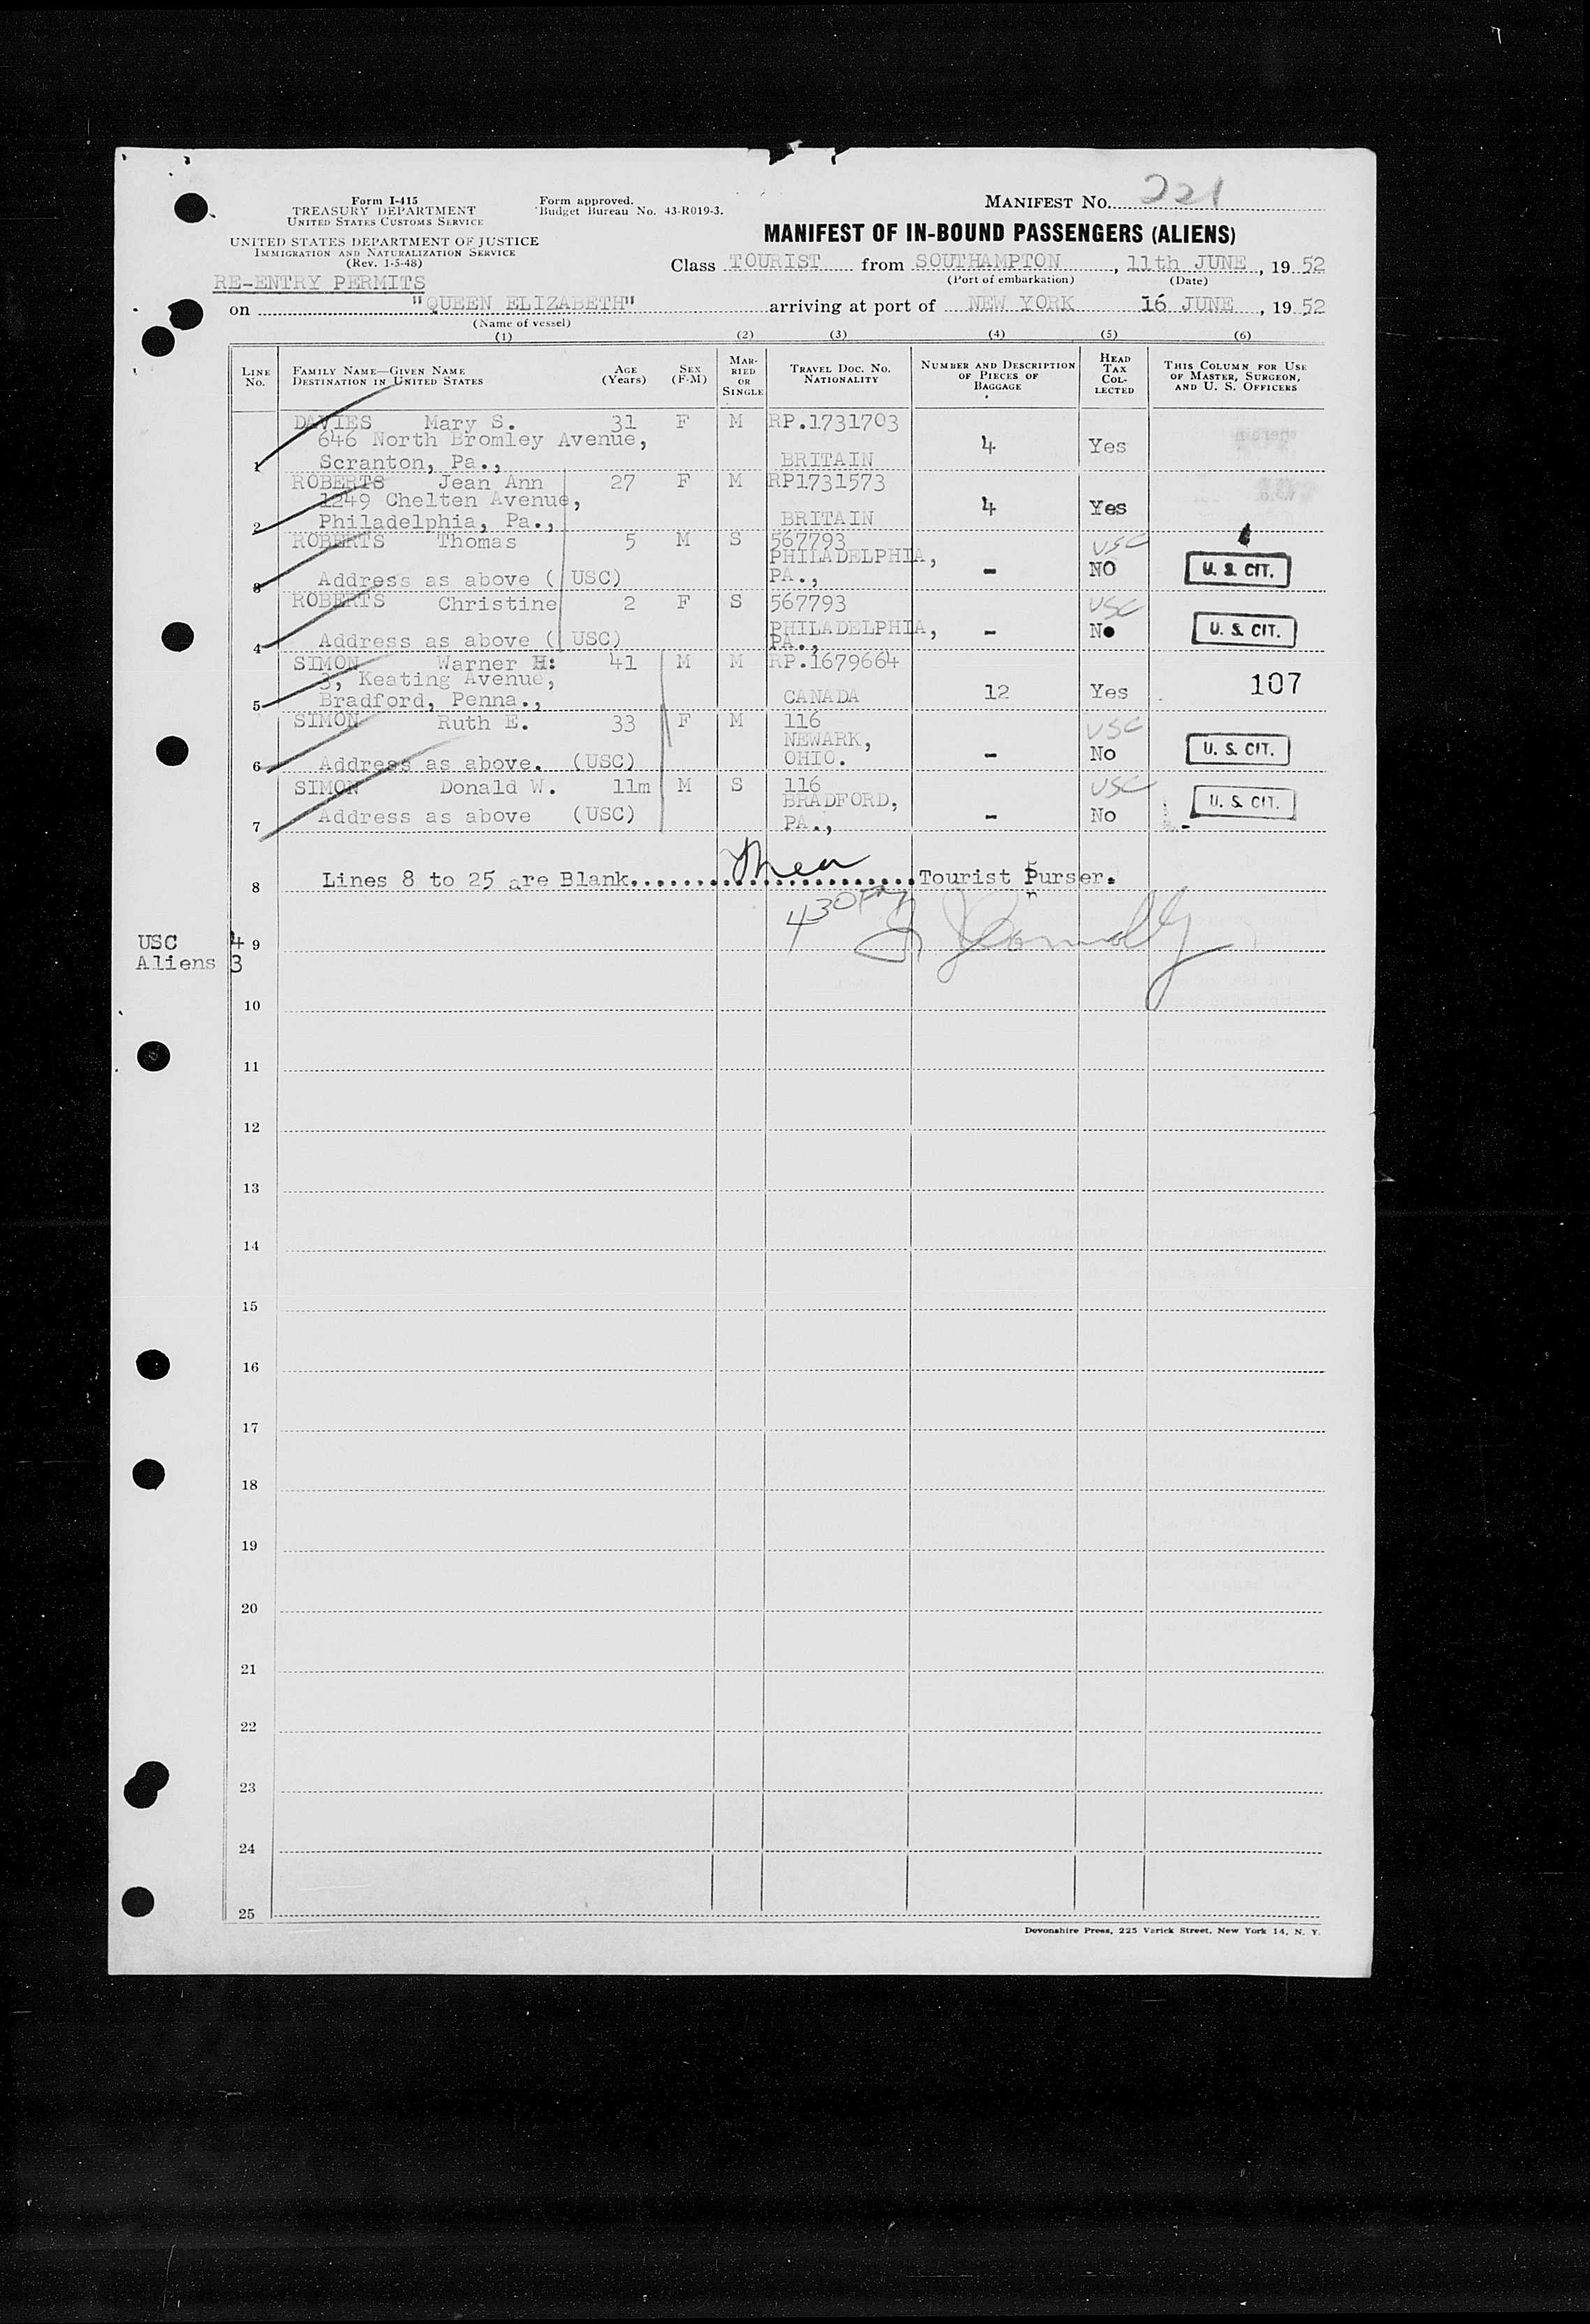 Form I-415
TREASURY DEPARTMENT
UNITED STATES CUSTOMS SERVICE
Form approved.
Budget Bureau No. 43-R019-3.
MANIFEST NO. 221
UNITED STATES DEPARTMENT OF JUSTICE
IMMIGRATION AND NATURALIZATION SERVICE
(Rev. 1-5-48)
MANIFEST OF IN-BOUND PASSENGERS (ALIENS)
Class TOURIST from SOUTHAMPTON, 11th JUNE, 19 52
(Port of embarkation) (Date)
RE-ENTRY PERMITS
on "QUEEN ELIZABETH" arriving at port of NEW YORK 16 JUNE, 19 52
(Name of vessel)
(1) (2) (3) (4) (5) (6)
LINE No. FAMILY NAME—GIVEN NAME DESTINATION IN UNITED STATES AGE (Years) SEX (F-M) MARRIED OR SINGLE TRAVEL DOC. NO. NATIONALITY NUMBER AND DESCRIPTION OF PIECES OF BAGGAGE HEAD TAX COLLECTED THIS COLUMN FOR USE OF MASTER, SURGEON, AND U. S. OFFICERS
DAVIES Mary S. 31 F M RP.1731703
646 North Bromley Avenue, 4 Yes
1 Scranton, Pa., BRITAIN
ROBERTS Jean Ann 27 F M RP1731573
1249 Chelten Avenue, 4 Yes
2 Philadelphia, Pa., BRITAIN
ROBERTS Thomas 5 M S 567793 USC
PHILADELPHIA, - NO U. S. CIT.
3 Address as above (USC) PA.,
ROBERTS Christine 2 F S 567793 USC
PHILADELPHIA, - No U. S. CIT.
4 Address as above (USC) PA.,
SIMON Warner H: 41 M M RP.1679664
3, Keating Avenue, 107
5 Bradford, Penna., CANADA 12 Yes
SIMON Ruth E. 33 F M 116 USC
NEWARK, U. S. CIT.
6 Address as above. (USC) OHIO. - No
SIMON Donald W. 11m M S 116 USC
BRADFORD, U. S. CIT.
7 Address as above (USC) PA., - No
8 Lines 8 to 25 are Blank. Tourist Purser.
430 PM
USC 4 9
Aliens 3
10
11
12
13
14
15
16
17
18
19
20
21
22
23
24
25
Devonshire Press, 225 Varick Street, New York 14, N. Y.